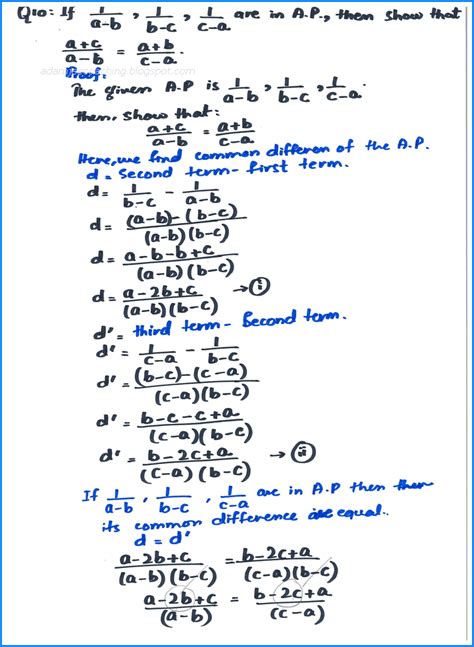 Q10: If 1/a-b , 1/b-c , 1/c-a are in A.P., then show that
a+c/a-b = a+b/c-a .
Proof:
The given A.P is 1/a-b , 1/b-c , 1/c-a .
then, show that:
a+c/a-b = a+b/c-a
Here, we find common differen of the A.P.
d = Second term - first term.
d = 1/b-c - 1/a-b
d = (a-b)-(b-c)/(a-b)(b-c)
d = a-b-b+c/(a-b)(b-c)
d = a-2b+c/(a-b)(b-c) → (i)
d' = third term - Second term.
d' = 1/c-a - 1/b-c
d' = (b-c)-(c-a)/(c-a)(b-c)
d' = b-c-c+a/(c-a)(b-c)
d' = b-2c+a/(c-a)(b-c) → (ii)
If 1/a-b , 1/b-c , 1/c-a are in A.P then
its common difference are equal.
d = d'
a-2b+c/(a-b)(b-c) = b-2c+a/(c-a)(b-c)
a-2b+c/(a-b) = b-2c+a/(c-a)